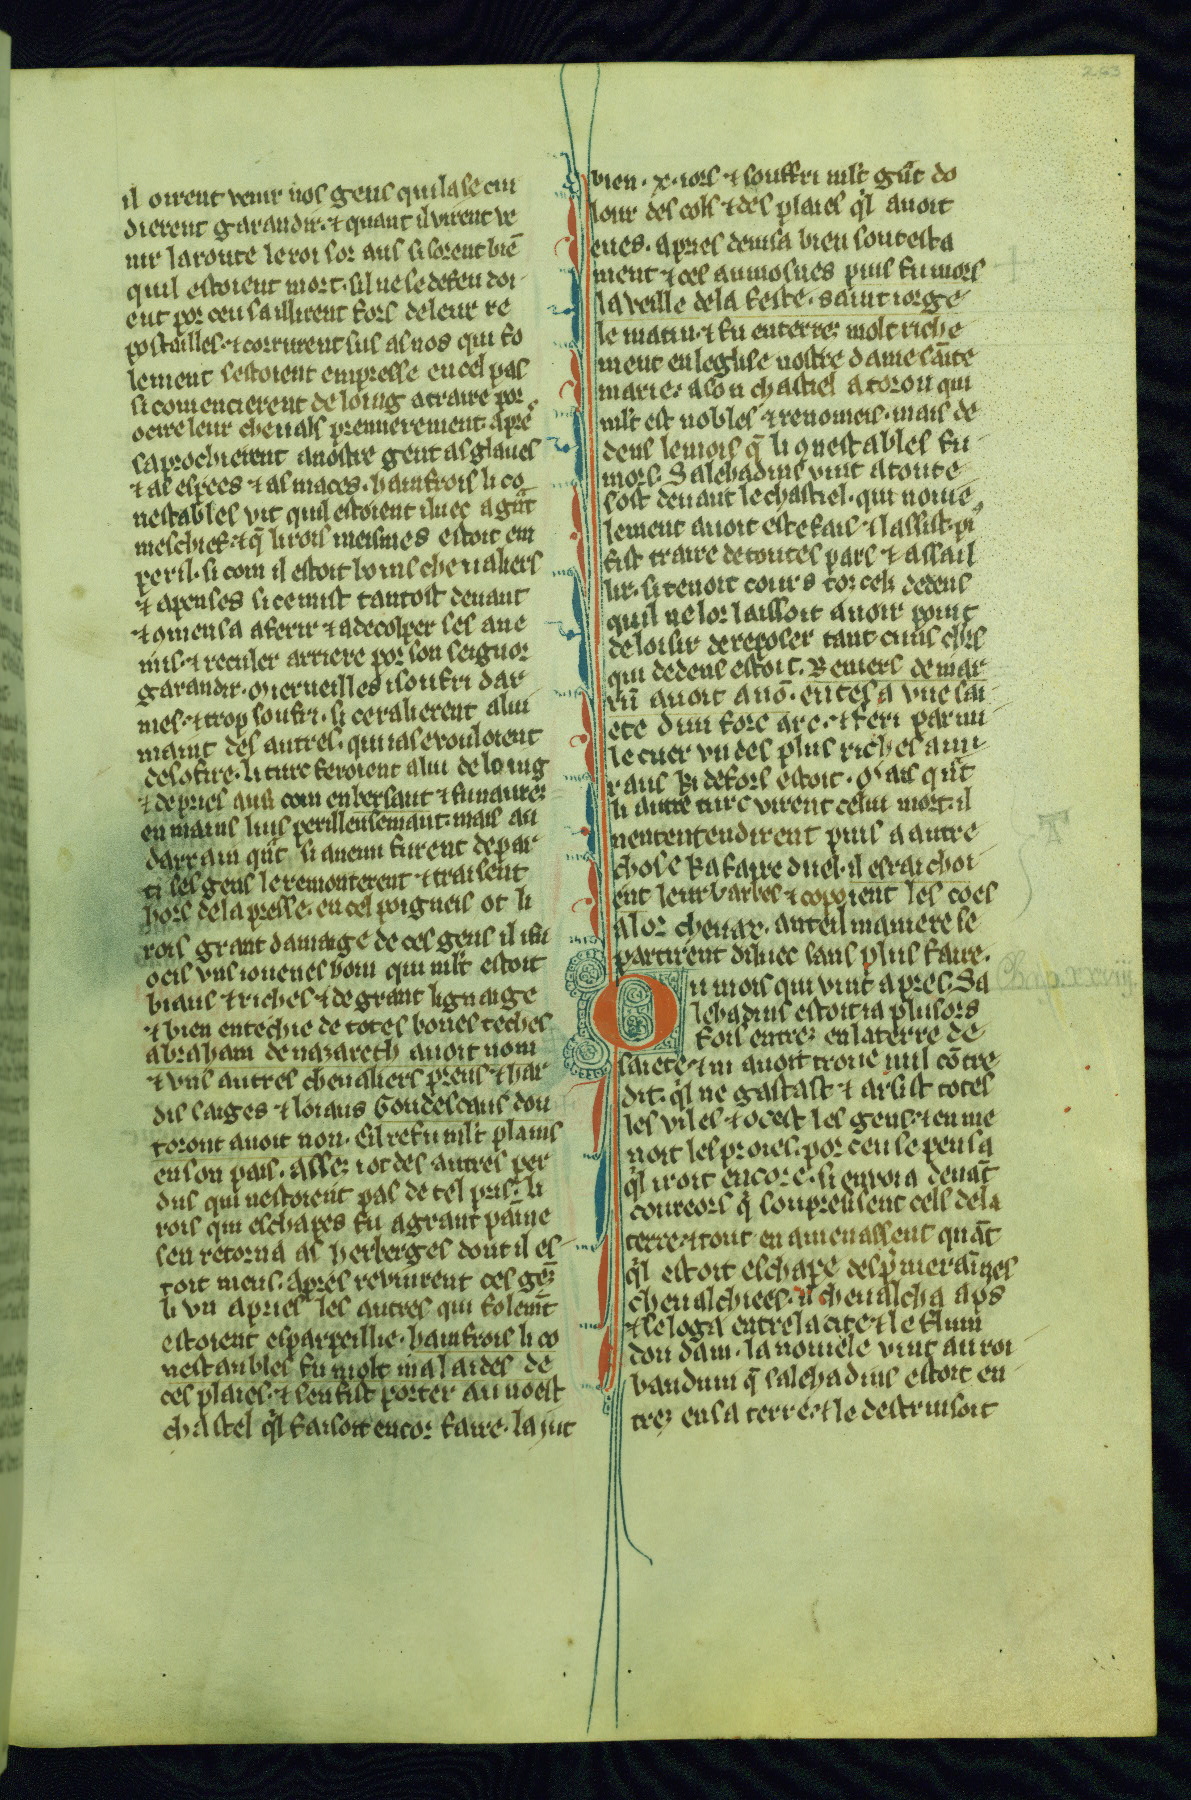 263
il oirent venir nos gens qui la se cui
dierent garandir. ⁊ quant il virent ve
nir la route le roi sor aus si sorent biē
quil estoient mort. sil ne se defendoi
ent por ceu saillirent fors de leur re
postailles. ⁊ corrurent sus as nos qui fo
lement sestoient empresse en cel pas
si comencierent de loing a traire por
ocirre leur chevals premierement. apre
saprochierent a nostre gent as glaives
⁊ as espees ⁊ as maces. hainfrois li co
nestables vit quil estoient iluec a gūt
meschief. ⁊ q̄ li rois meismes estoit em
peril. si com il estoit bouns chevaliers
⁊ apenses si ce mist tantost devant
⁊ omensa a ferir ⁊ a decolper ses ane
mis. ⁊ reculer arriere por son seignor
garandir. merveilles i soufri dar
mes. ⁊ trop soufri. si ce ralierent a lui
maint des autres. qui ia se vouloient
desofire. li turc feroient a lui de loing
⁊ de pries aus com en bersaut ⁊ fu navrez
en mains lius perilleusemant. mais au
darrain qūt si anemi furent depar
ti ses gens le remonterent ⁊ traisent
hors de la presse. en cel poigneis ot li
rois grant damaige de ces gens il i fu
ocis vns iouenes hom qui ml't estoit
biaus ⁊ riches ⁊ de grant lignaige
⁊ bien enteche de totes bones teches
abraham de nazareth avoit nom
⁊ vns autres chevaliers preus ⁊ har
dis saiges ⁊ loiaus Goudescaus dou
toront avoit non. Cil refu ml't plains
en son pais. Assez i ot des autres per
dus qui nestoient pas de tel pris. li
rois qui eschapes fu a grant paine
sen retorna as herberges dont il es
toit meus. apres revinrent ces gēz
li vn apries les autres qui folemt̄
estoient esparpeillie. hainfrois li co
nestaubles fu molt malaides de
ces plaies. ⁊ sen fist porter au noest
chastel q̄l faisoit encor faire. la iut
bien .x. iors ⁊ souffri ml't gūt do
lour des cols ⁊ des plaies q̄l avoit
eues. apries devisa bien son testa
ment ⁊ ces aumosnes puis fu mors
la veille de la feste. saint iorge
le matin. ⁊ fu enterrez molt riche
ment en leglise nostre dame sāīte
marie. a son chastiel a toron qui
ml't est nobles ⁊ renomeis. mais de
dens le mois q̄ li qnestables fu
mors. Salehadins vint a toute
sost devant le chastiel. qui novie
lement avoit este fais ⁊ lassist. pi
fist traire de toutes pars ⁊ assail
lir. si tenoit cours tor cels dedens
quil ne lor laissoit avoir point
de loisir de reposer tant cuns ch'rs
qui dedens estoit. Reniers de mar
rū avoit a nō. entesa vne sai
ete dun fort arc. ⁊ feri parmi
le cuer vn des plus riches ami
raus ki defors estoit. Mais q̄nt
li autre turc virent celui mort. il
nentendirent puis a autre
chose ka faire duel. il esraichoi
ent leur barbes ⁊ copoient les coes
a lor chevax. an teil maniere se
partirent diluec sans plus faire.
Ou mois qui vint apres. Sa
lehadins estoit ia plusors
fois entrez en la terre de
saiete ⁊ ni avoit trove nul cōtre
dit. q̄l ne gastast ⁊ arsist totes
les viles ⁊ ocest les gens. ⁊ enme
noit les proies. por ceu se pensa
q̄l iroit encore. si envoia devāt
coureors q̄ souprensent cels de la
terre. ⁊ tout en amenassent quāt
q̄l estoit eschape des p̄meraīnes
chevalchiees. il chevalcha aps
⁊ se loga entre la cite ⁊ le flum
dou dam. la novele vint au roi
bauduin q̄ salehadins estoit en
trez en sa terre. ⁊ le destruisoit
Chap. xxviij.